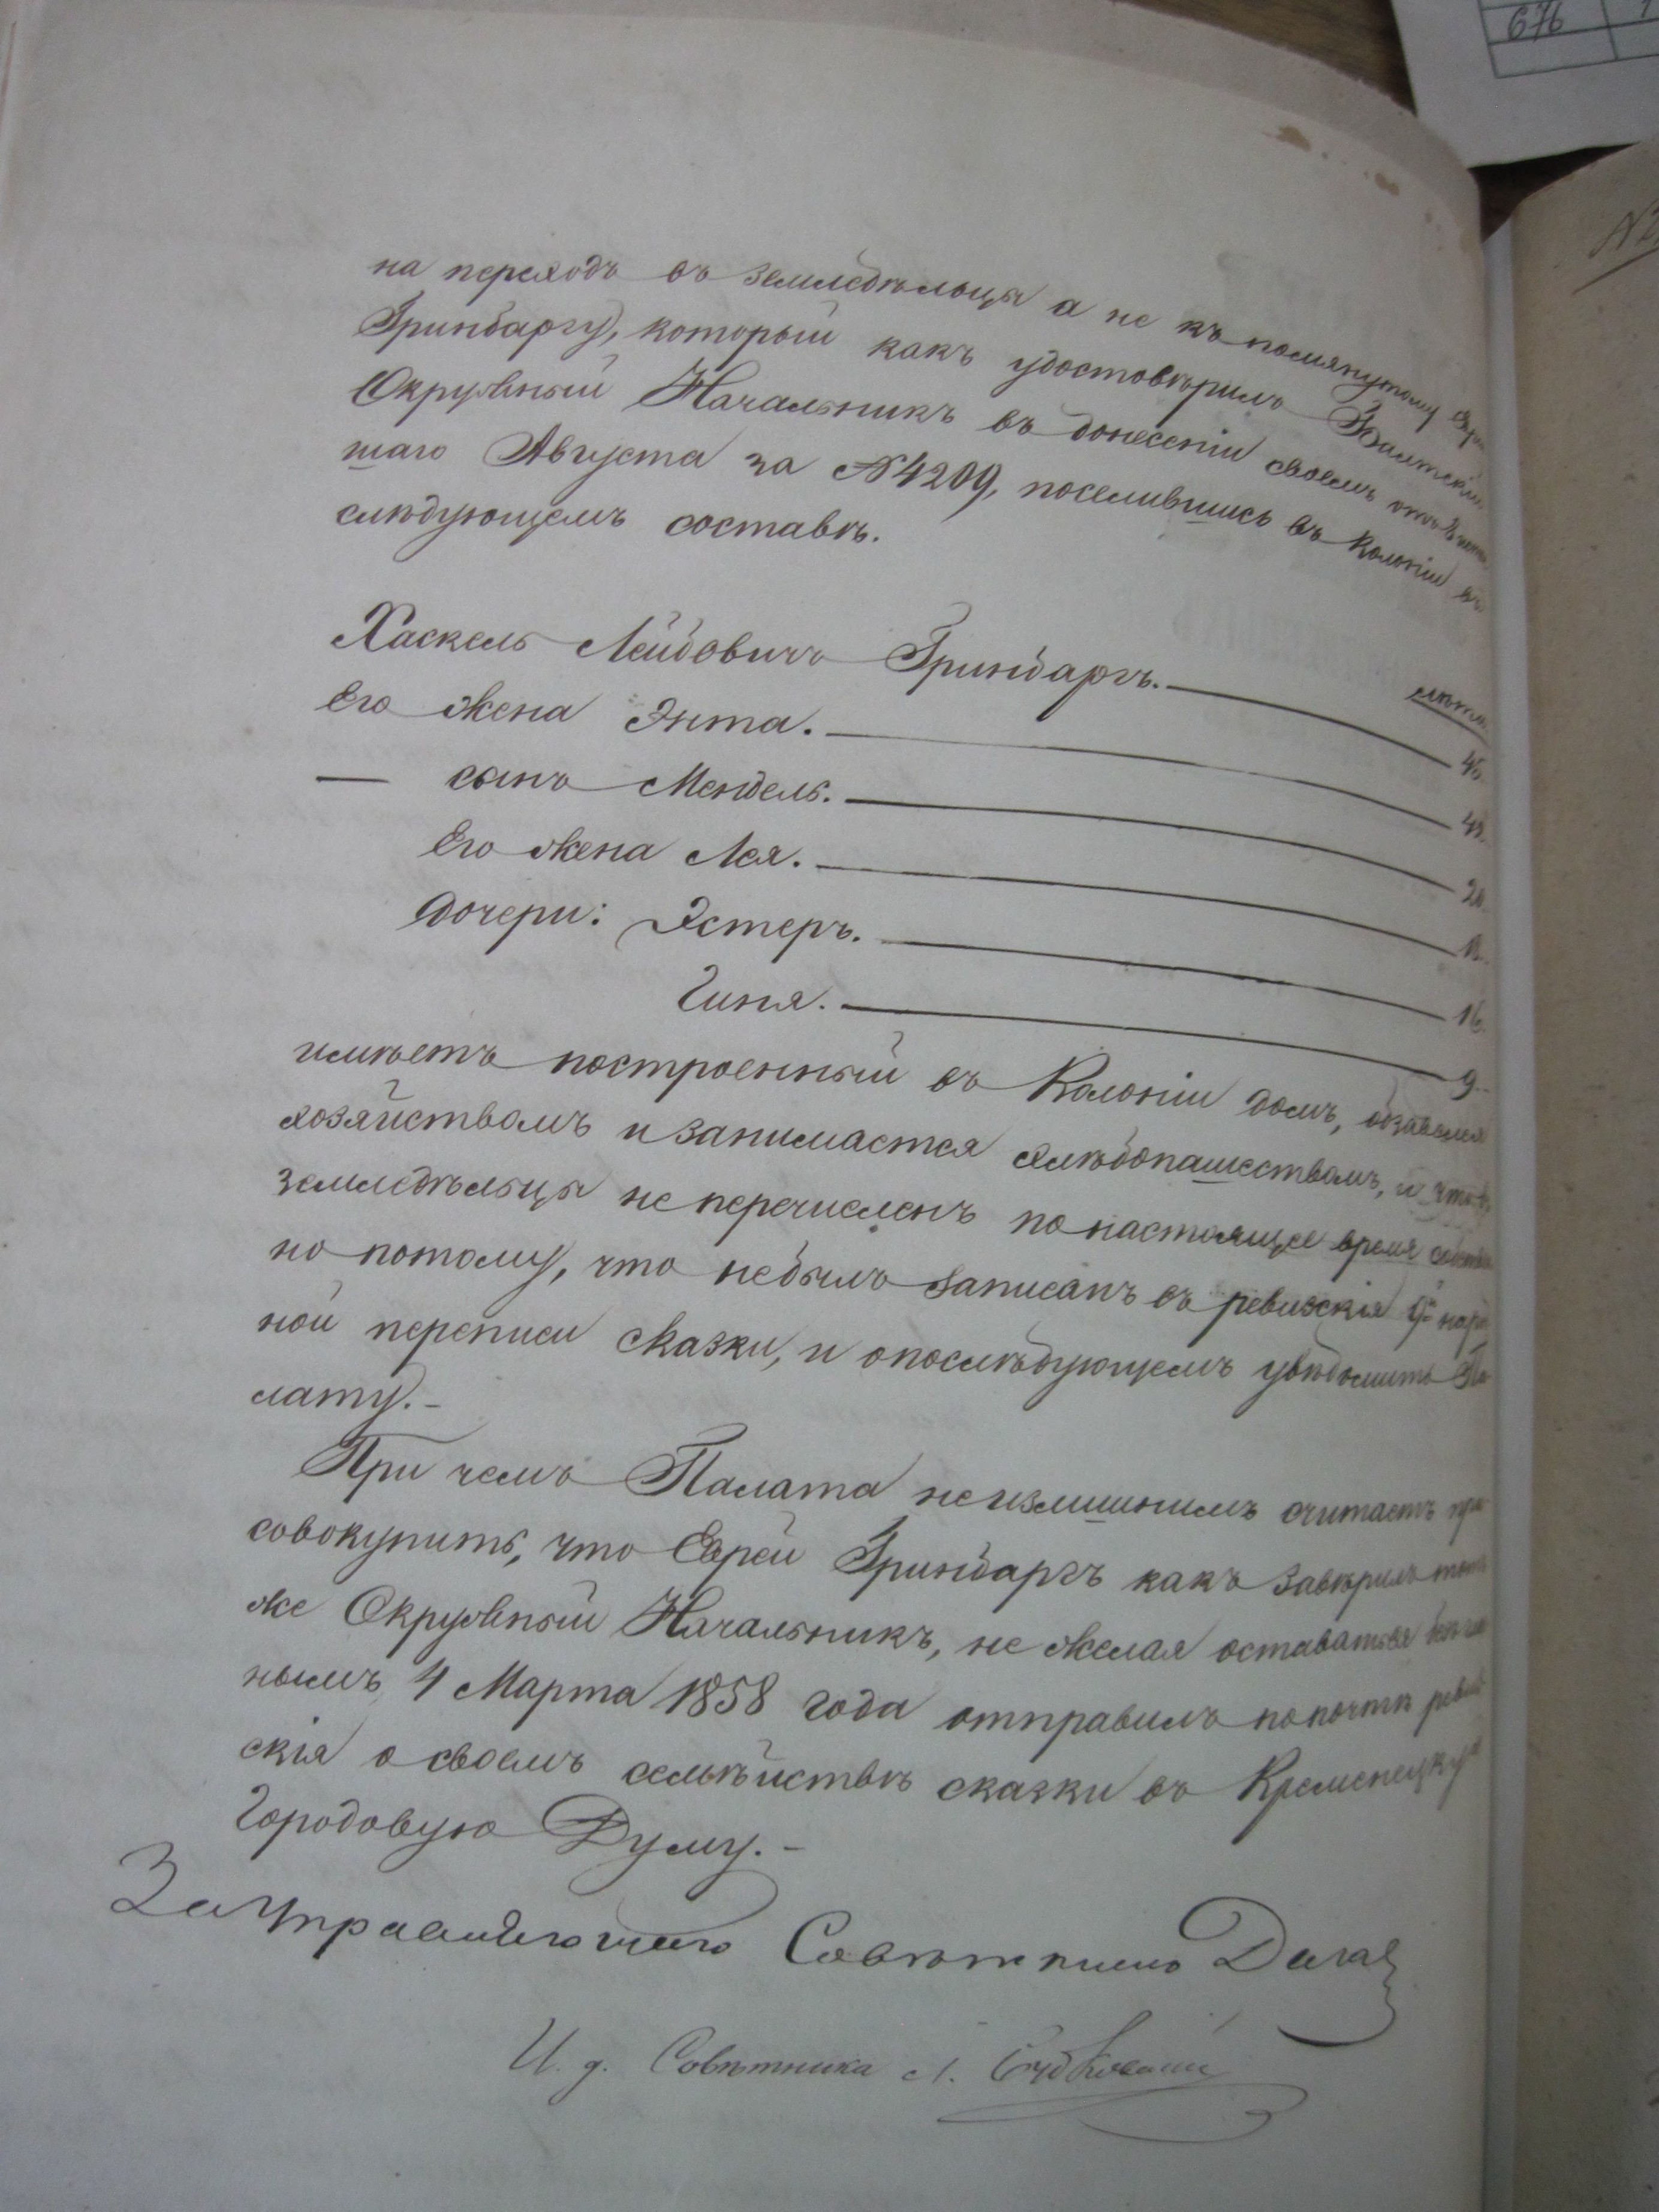 676
на переходъ въ земледѣльцы а не къ помянутому
Гринбаргу, который какъ удостовѣрилъ Балтскій
Окружный Начальникъ въ донесеніи своемъ
шаго Августа за №4209, поселившись въ Колоніи въ
слѣдующемъ составѣ.
лѣта
Хаскель Лейбовичъ Гринбаргъ.
Его жена Энта.
— сынъ Мендель.
Его жена Лея.
дочери: Эстеръ. 16.
Гиня. 9.
имѣетъ построенный въ Колоніи домъ, обзавелся
хозяйствомъ и занимается хлѣбопашествомъ, и что въ
земледѣльцы не перечисленъ по настоящее время
но потому, что небылъ записанъ въ ревизскія 9й нарό
ной переписи сказки, и опослѣдующемъ увѣдомить Па
лату.-
При чемъ Палата неизлишнимъ считаетъ при
совокупить, что Еврей Гринбаргъ какъ завѣрилъ тотъ
же Окружный Начальникъ, не желая оставаться
нымъ, 4 Марта 1858 года отправилъ попочтѣ ревиз
скія о своемъ семѣйствѣ сказки въ Кременецкую
Городовую Думу.-
За Управляющаго Совѣтникъ
И. д. Совѣтника